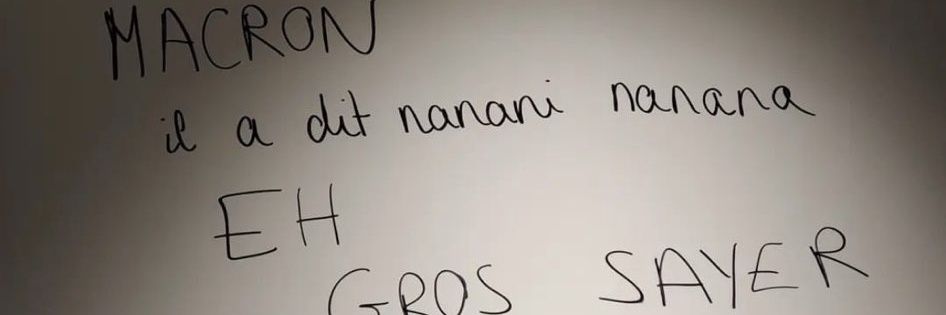 MACRON
il a dit nanani nanana
EH
GROS SAYER